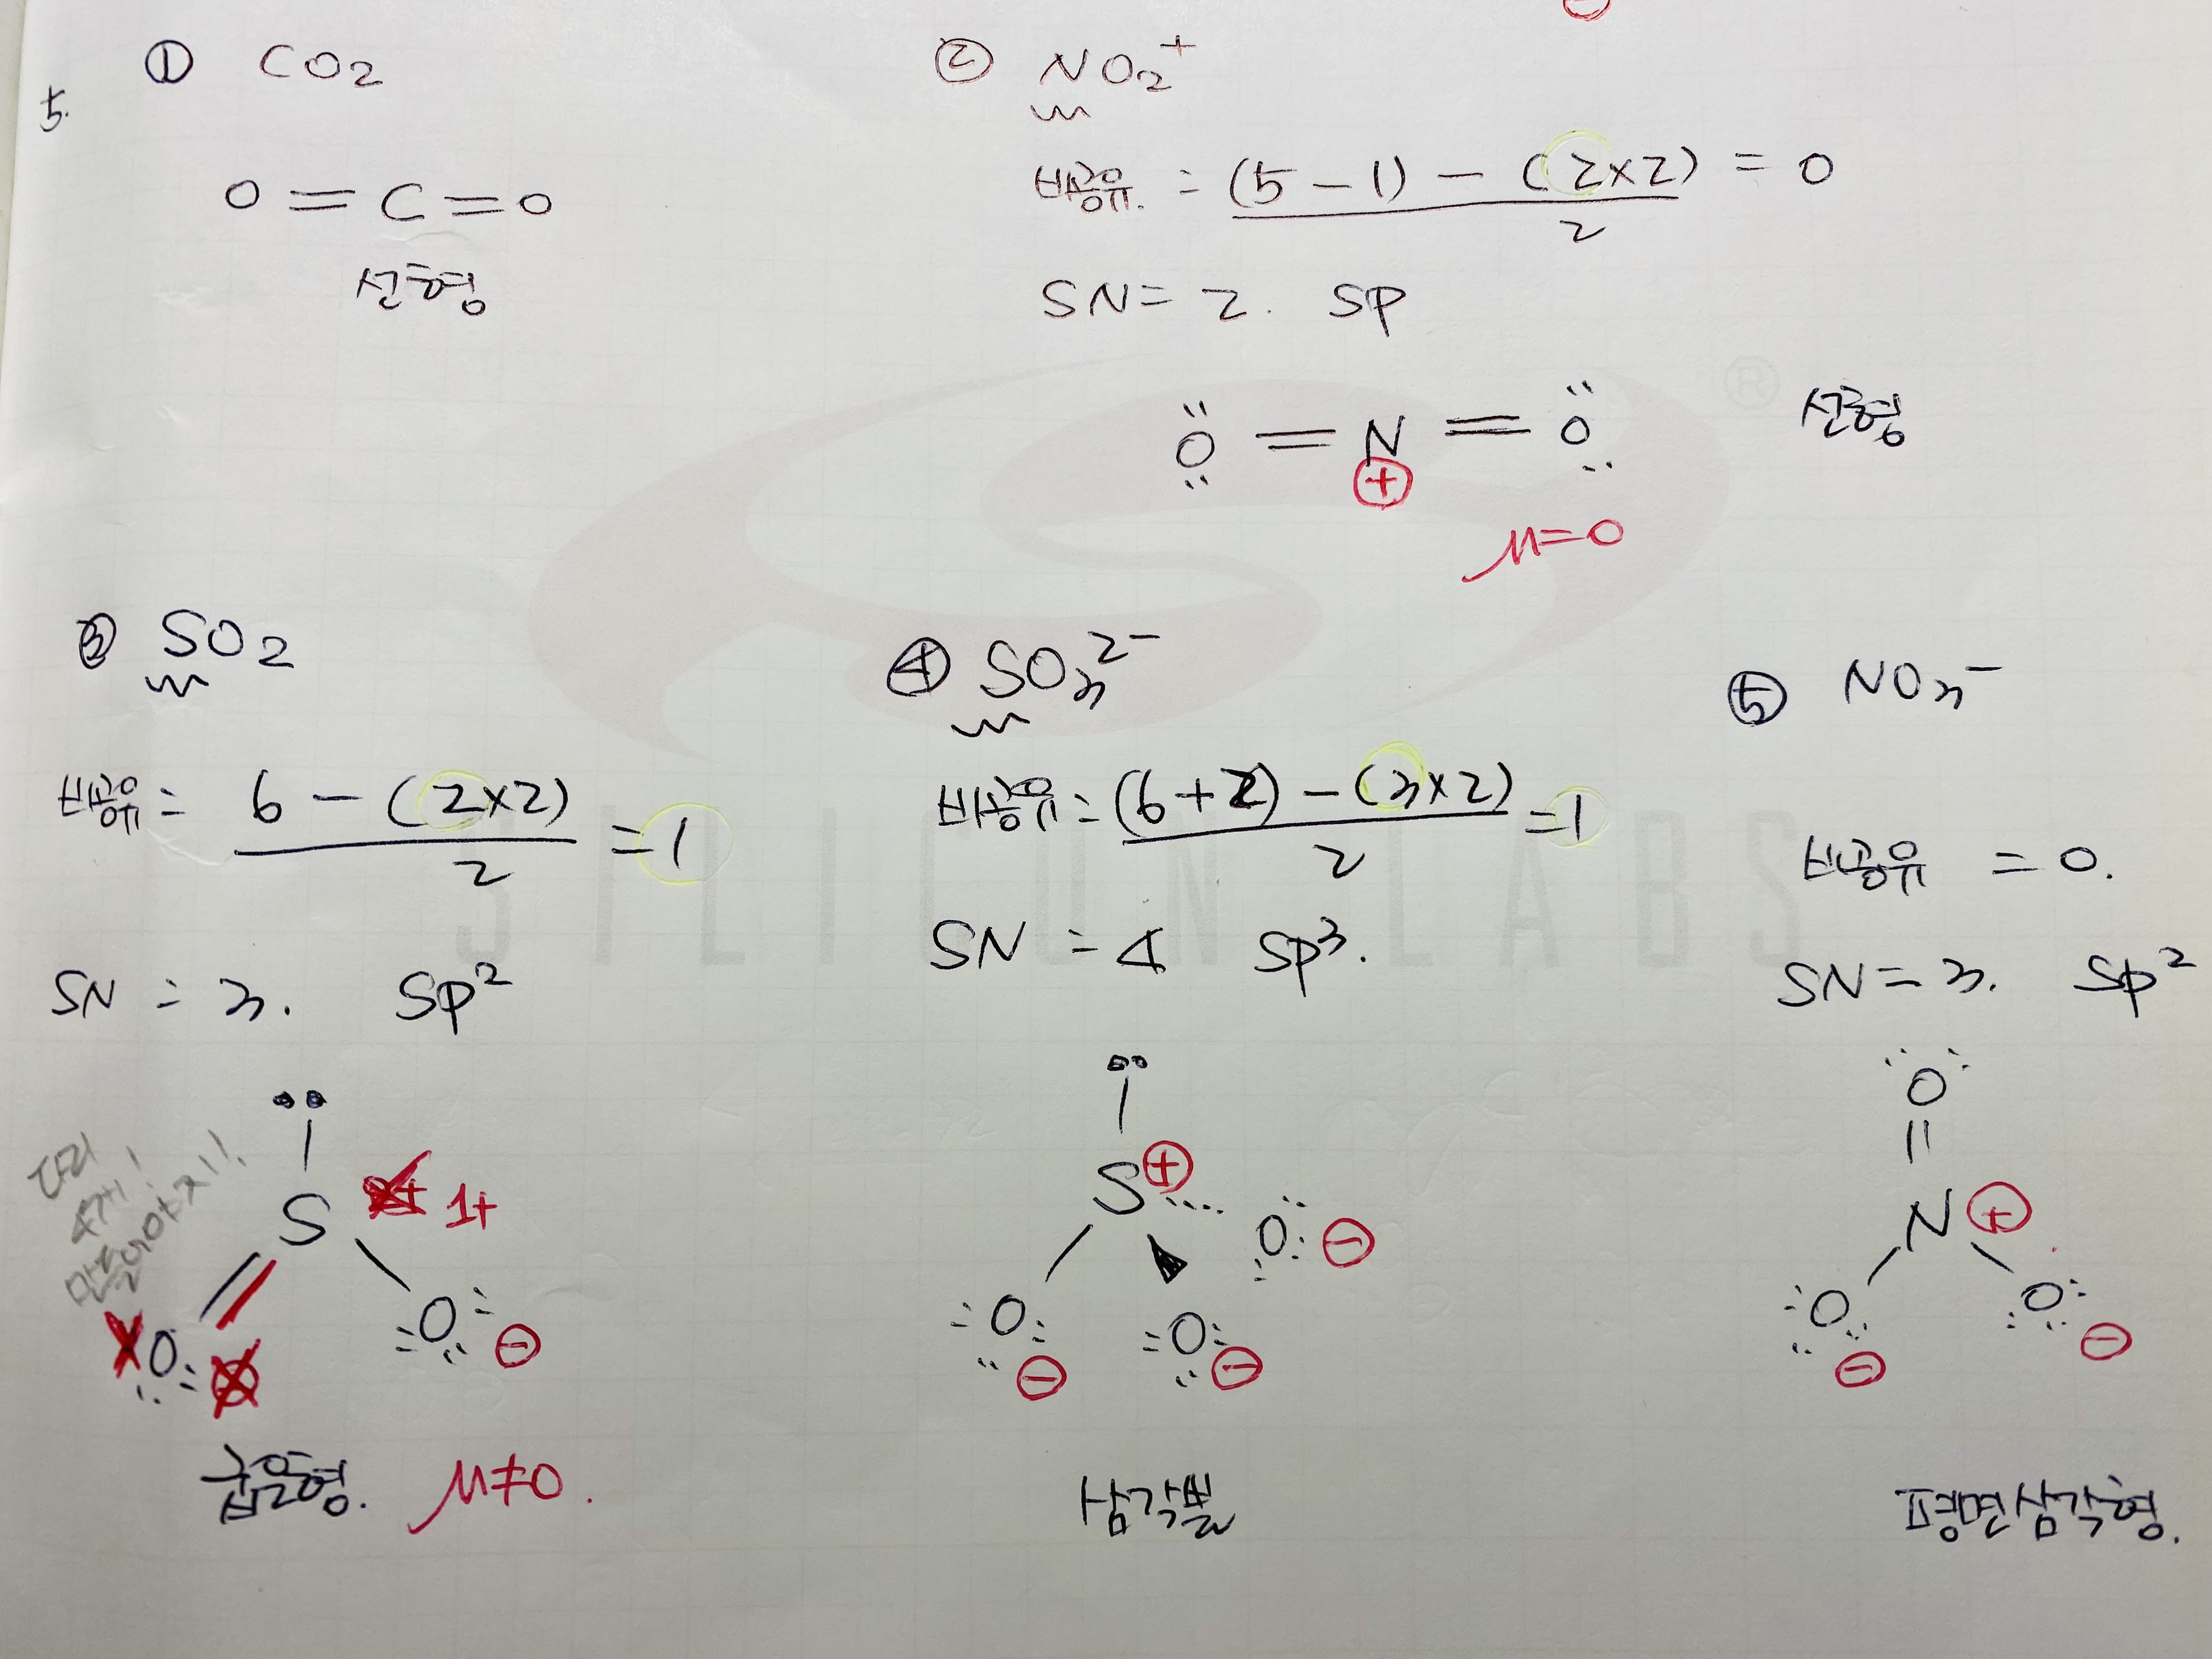 5.
① CO₂
O = C = O
선형
② NO₂⁺
비공유 = (5 - 1) - (2×2) / 2 = 0
SN = 2. sp
O = N = O 선형
⊕
μ=0
③ SO₂
비공유 = 6 - (2×2) / 2 = 1
SN = 3. sp²
다리
4개!
만들어야지!!
S 2+ 1+
O O ⊖
굽은형. μ≠0.
④ SO₃²⁻
비공유 = (6+2) - (3×2) / 2 = 1
SN = 4 sp³.
S ⊕
O ⊖
O O
⊖ ⊖
삼각뿔
⑤ NO₃⁻
비공유 = 0.
SN = 3. sp²
O
||
N ⊕
O O
⊖ ⊖
평면삼각형.
®
SILICON LABS